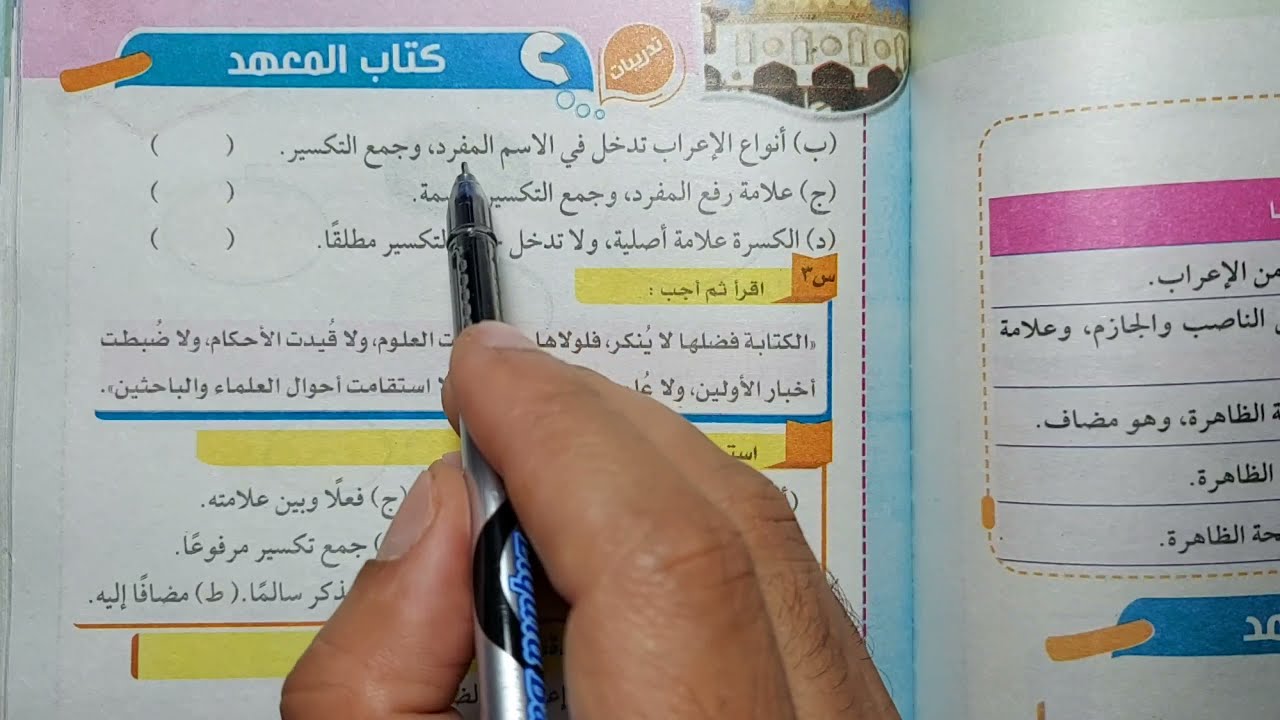 تدريبات
كتاب المعهد
(ب) أنواع الإعراب تدخل في الاسم المفرد، وجمع التكسير. ( )
(ج) علامة رفع المفرد، وجمع التكسير ( )
(د) الكسرة علامة أصلية، ولا تدخل التكسير مطلقًا. ( )
س٣
اقرأ ثم أجب :
«الكتابة فضلها لا يُنكر، فلولاها العلوم، ولا قُيدت الأحكام، ولا ضُبطت
أخبار الأولين، ولا استقامت أحوال العلماء والباحثين».
(ج) فعلًا وبين علامته.
جمع تكسير مرفوعًا.
سالمًا. (ط) مضافًا إليه.
من الإعراب.
الناصب والجازم، وعلامة
الظاهرة، وهو مضاف.
الظاهرة.
الظاهرة.